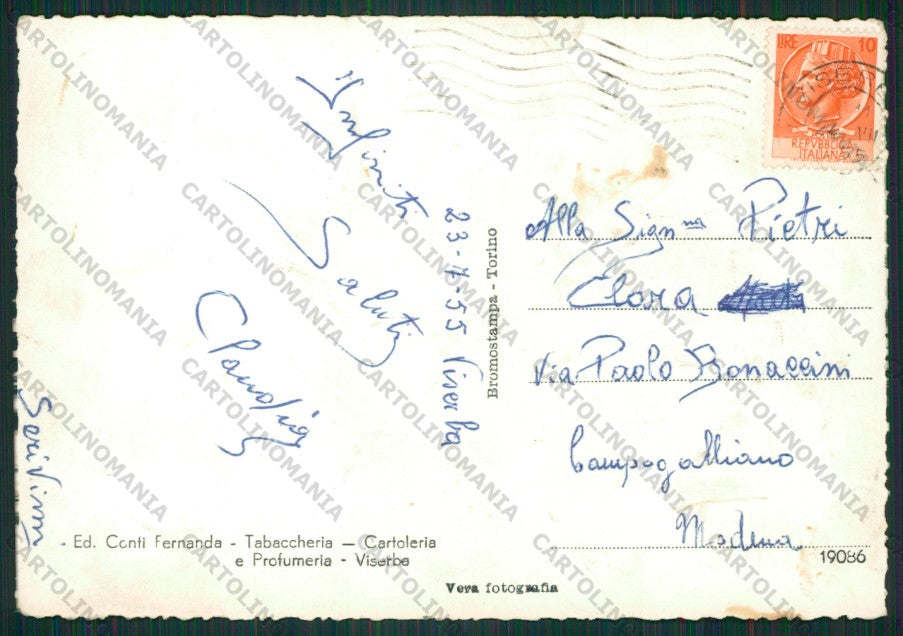 LIRE 10
REPVBBLICA
ITALIANA
Infiniti
Saluti
Claudia
23-7-55 Viserba
Scrivimi
Bromostampa - Torino
Alla Sign.na Pietri
Clara
Via Paolo Bonaccini
Campogalliano
Modena
Ed. Conti Fernanda - Tabaccheria — Cartoleria
e Profumeria - Viserba
19086
Vera fotografia
CARTOLINOMANIA